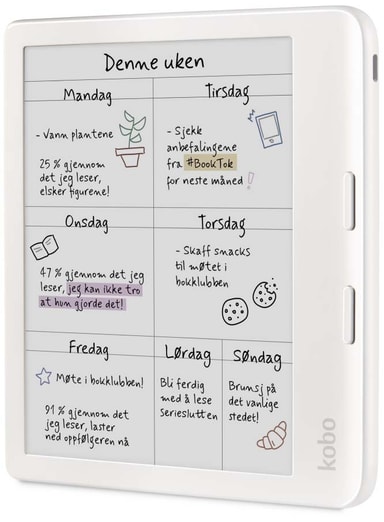 Denne uken
Mandag
- Vann plantene
25 % gjennom
det jeg leser,
elsker figurene!
Tirsdag
- Sjekk
anbefalingene
fra #BookTok
for neste måned!
Onsdag
47 % gjennom det jeg
leser, jeg kan ikke tro
at hun gjorde det!
Torsdag
- Skaff snacks
til møtet i
bokklubben
Fredag
Møte i bokklubben!
91 % gjennom det
jeg leser, laster
ned oppfølgeren nå
Lørdag
Bli ferdig
med å lese
Serieslutten
Søndag
Brunsj på
det vanlige
stedet!
kobo